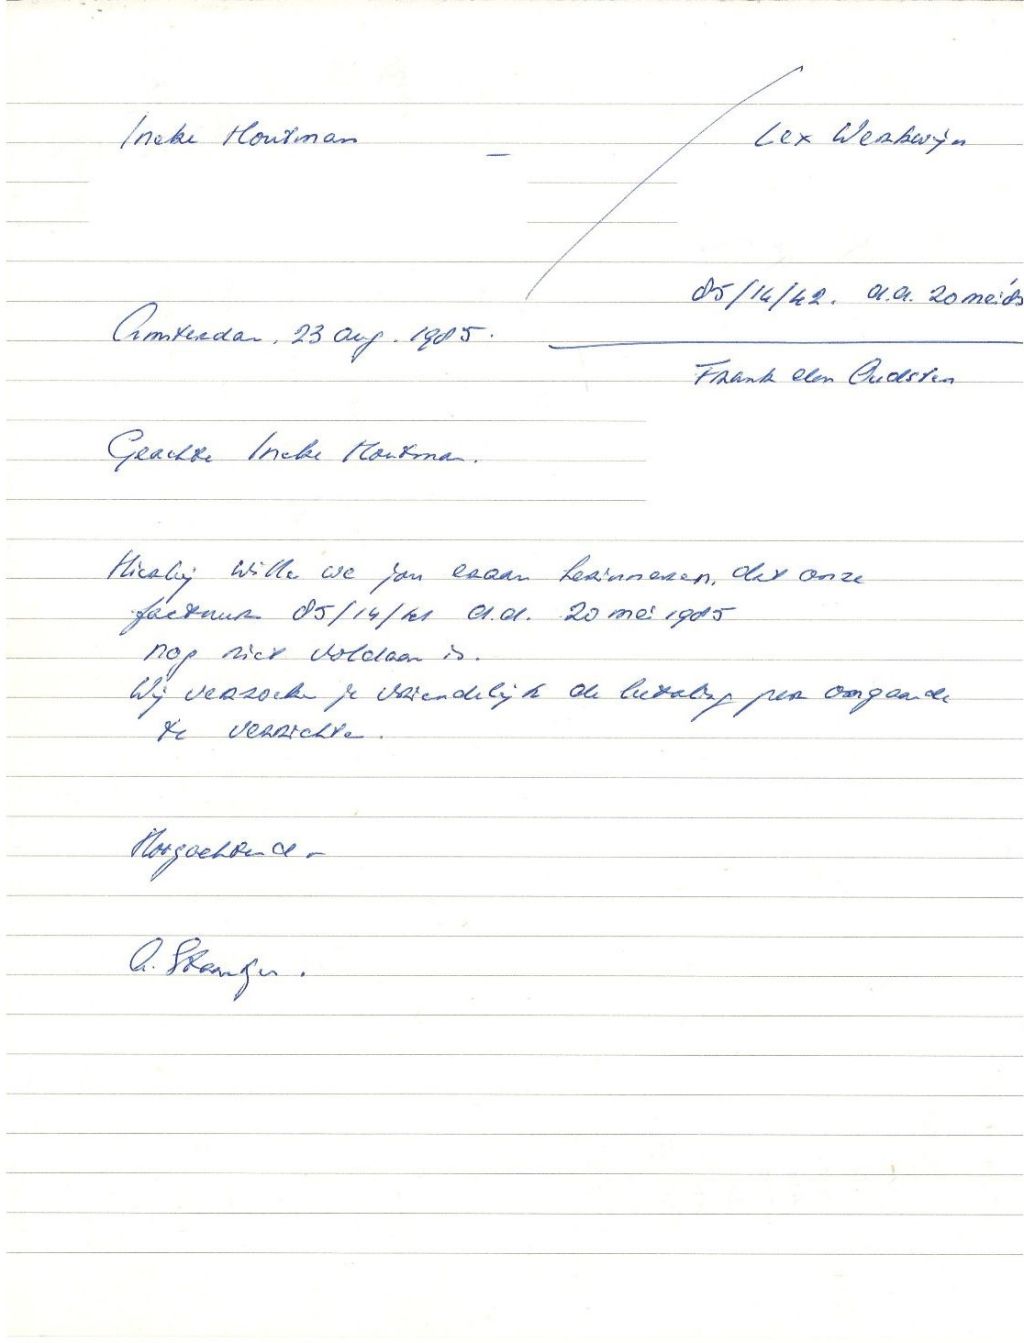 Ineke Houtman
Lex Werkwijn
85/14/42. d.d. 20 mei '85
Amsterdam, 23 aug. 1985.
Frank den Oudsten
Geachte Ineke Houtman.
Hierbij willen we jou eraan herinneren, dat onze
factuur 85/14/41 d.d. 20 mei 1985
nog niet voldaan is.
Wij verzoeken je vriendelijk de betaling per omgaande
te verrichten.
Hoogachtend –